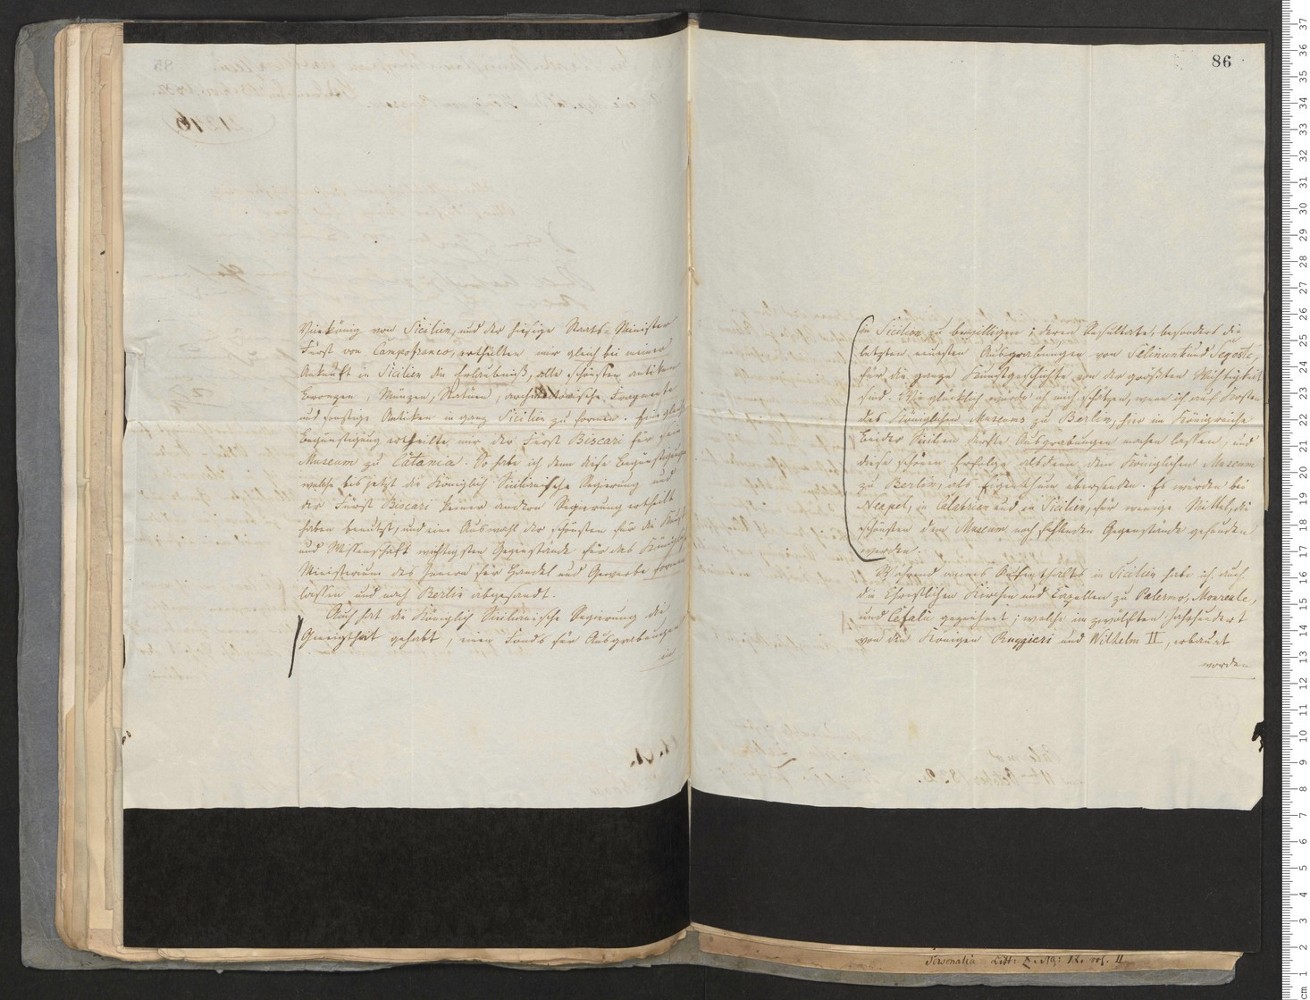 Vicekönig von Sicilien, und der hiesige Staats-Minister
Fürst von Campofranco, ertheilten mir gleich bei meiner
Ankunft in Sicilien die Erlaubniß, alle schönsten antiken
Bronzen, Münzen, Statuen, architektonische Fragmente
und sonstige Antiken in ganz Sicilien zu formen. Eine gleiche
Begünstigung ertheilte mir der Fürst Biscari für sein
Museum zu Catania. So habe ich denn diese Begünstigungen
welche bis jetzt die Königlich Sicilianische Regierung und
der Fürst Biscari keiner andren Regierung ertheilt
haben benutzt, und eine Auswahl der schönsten für die Kunst
und Wissenschaft wichtigsten Gegenstände für das Königliche
Ministerium des Innern für Handel und Gewerbe formen
lassen und nach Berlin abgesandt.
Auch hat die Königlich Sicilianische Regierung die
Geneigtheit gehabt, einen Fonds für Ausgrabungen
in
86
in Sicilien zu bewilligen; deren Resultate, besonders die
letzten neuesten Ausgrabungen von Selinunt und Segeste,
für die ganze Kunstgeschichte von der größten Wichtigkeit
sind. Wie glücklich würde ich mich schätzen, wenn ich auf Kosten
des Königlichen Museums zu Berlin, hier im Königreiche
beider Sicilien dürfte Ausgrabungen machen lassen, und
diese schönen Erfolge alsdann dem Königlichen Museum
zu Berlin, als Eigenthum übersenden. Es würden bei
Neapel, in Calabrien und in Sicilien, für wenige Mittel, die
schönsten dem Museum noch fehlenden Gegenstände gefunden
werden.
Während meines Aufenthaltes in Sicilien habe ich auch
die Christlichen Kirchen und Capellen zu Palermo, Monreale,
und Cefalu gezeichnet; welche im zwölften Jahrhundert
von den Königen Ruggieri und Wilhelm II, erbaut
worden
Personalia Litt: Z. No: 12. vol. II